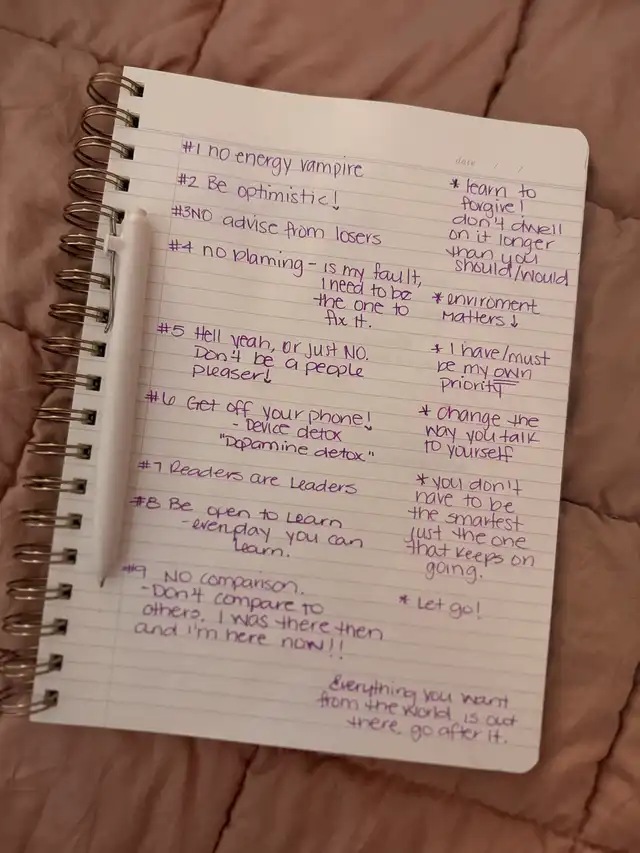 date / /
#1 no energy vampire
#2 Be optimistic!
#3 NO advise from losers
#4 no blaming - is my fault,
I need to be
the one to
fix it.
#5 Hell yeah, or just NO.
Don't be a people
pleaser!
#6 Get off your phone!
- Device detox
"Dopamine detox"
#7 Readers are Leaders
#8 Be open to Learn
- everyday you can
learn.
#9 NO comparison.
- Don't compare to
others. I was there then
and I'm here now!!
* learn to
forgive!
don't dwell
on it longer
than you
should/would
* enviroment
Matters!
* I have/must
be my own
priority
* change the
way you talk
to yourself
* you don't
have to be
the smartest
just the one
that keeps on
going.
* Let go!
Everything you want
from the world is out
there, go after it.